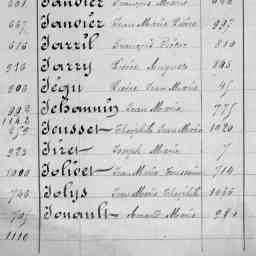 Janvier François Marie
667 Janvier Jean Marie Pierre 997
616 Jarril François Pierre 810
916 Jarry Pierre Auguste 145
906 Jégu Pierre Jean Marie 45
992 Jehannin Jean Marie 775
1142
Jeusset Théophile Jean Marie 1020
923 Jiret Joseph Marie 7
1000 Jolivet Jean Marie Toussaint 714
745 Jolys Jean Marie Théophile 1055
705 Jouault Armand Marie
1110